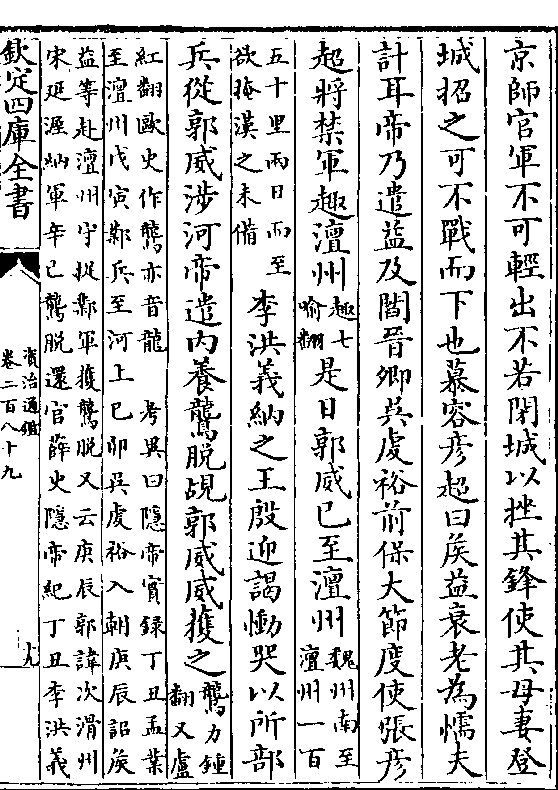 京師官軍不可輕出不若閉城以挫其鋒使其母妻登
城招之可不戰而下也慕容彦超曰矦益衰老為懦夫
計耳帝乃遣益及閻晉卿吳虔裕前保大節度使張彦
超將禁軍趣澶州趣七喻翻是日郭威已至澶州魏州南至澶州一百
五十里兩日而至欲掩漢之未備李洪義納之王殷迎謁慟哭以所部
兵從郭威涉河帝遣内養鸗脱覘郭威威獲之鸗力鍾翻又盧
紅翻歐史作鸗亦音龍 考異曰隱帝實録丁丑孟業
至澶州戊寅鄴兵至河上已卯吳虔裕入朝庚辰詔矦
益等赴澶州守捉鄴軍獲鸗脱又云庚辰郭諱次滑州
宋延渥納軍年已鸗脱還官薛史隱帝紀丁丑李洪義
欽定四庫全書
資治通鑑
卷二百八十九
十九